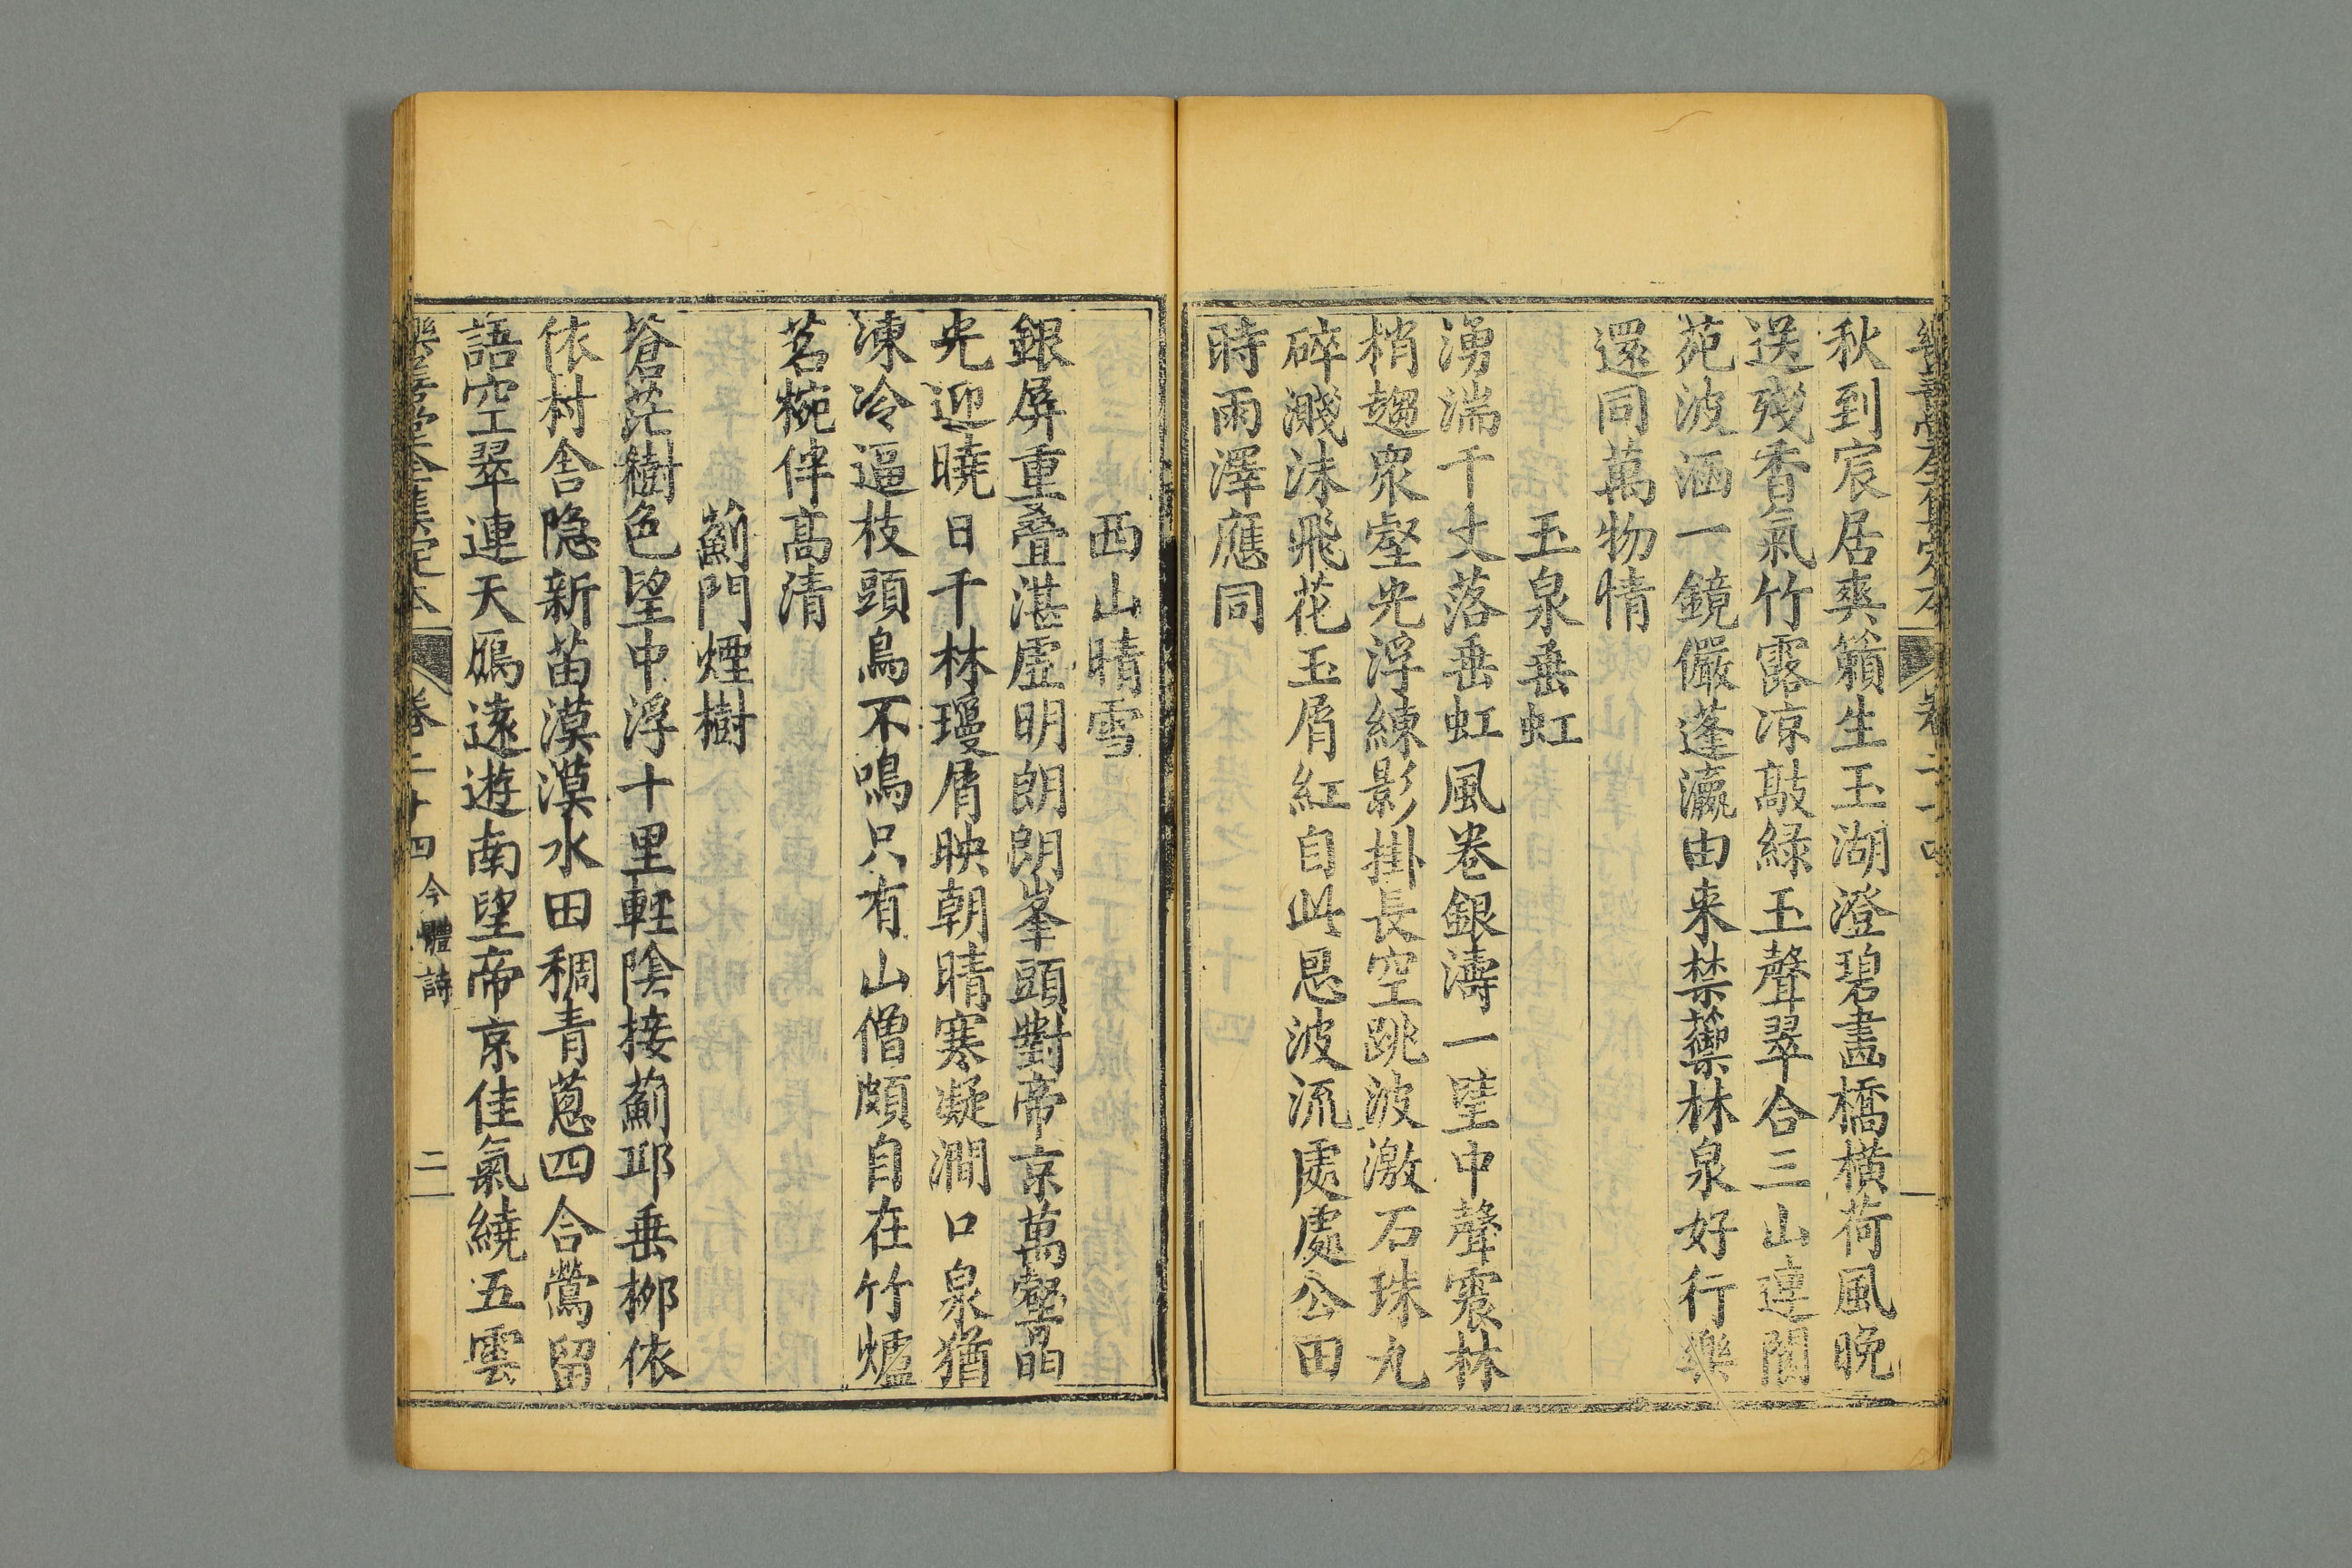 樂善堂全集定本 卷二十四 一
秋到宸居爽籟生玉湖澄碧畵橋橫荷風晚
送殘香氣竹露凉敲綠玉聲翠合三山連閬
苑波涵一鏡儼蓬瀛由来禁籞林泉好行樂
還同萬物情
玉泉垂虹
湧湍千丈落垂虹風卷銀濤一望中聲震林
梢趨衆壑光浮練影掛長空跳波激石珠丸
碎濺沫飛花玉屑紅自此恩波流處處公田
時雨澤應同
西山晴雪
銀屏重疊湛虛明朗朗峯頭對帝京萬壑晶
光迎曉日千林瓊屑映朝晴寒凝澗口泉猶
凍冷逼枝頭鳥不鳴只有山僧頗自在竹爐
茗椀伴高清
薊門煙樹
蒼茫樹色望中浮十里輕陰接薊邱垂栁依
依村舍隱新苗漠漠水田稠青蔥四合鶯留
語空翠連天鴈逺遊南望帝京佳氣繞五雲
樂善堂全集定本 卷二十四 今體詩 二